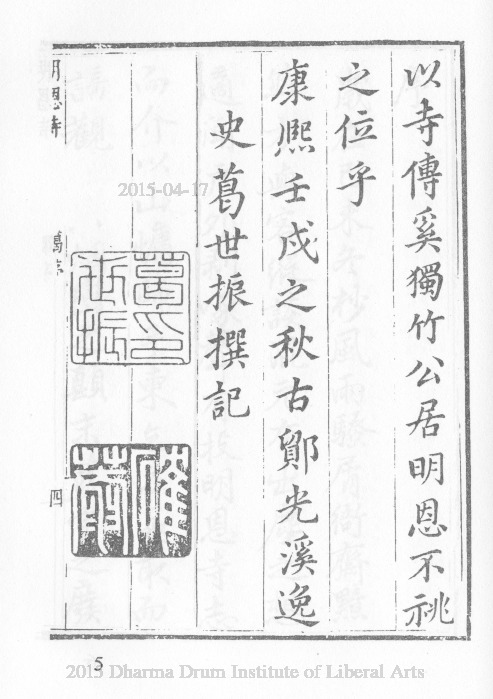 以寺傳奚獨竹公居明恩不祧
之位乎
康熙壬戌之秋古鄮光溪逸
史葛世振撰記
葛世振印
明恩寺
葛序
四
2015-04-17
5
2015 Dharma Drum Institute of Liberal Arts